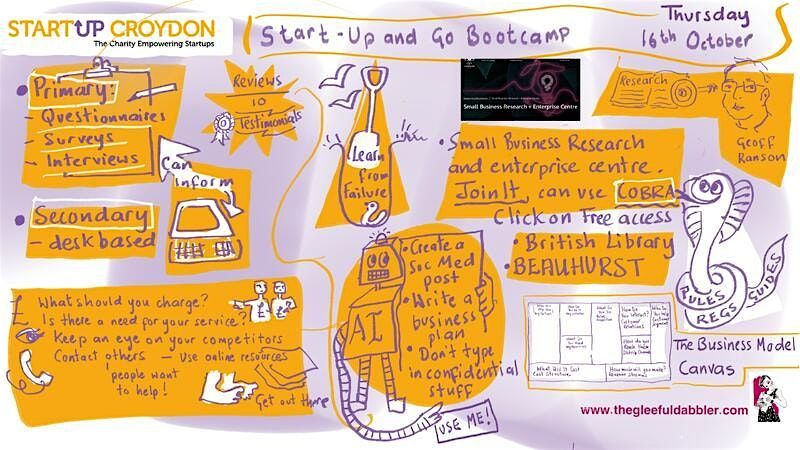 STARTUP CROYDON
The Charity Empowering Startups
Start-Up and Go Bootcamp
Thursday
16th October
Primary:
- Questionnaires
- Surveys
- Interviews
Can
inform
Secondary
- desk based
Reviews
Testimonials
Learn
from
Failure
Small Business Research + Enterprise Centre
Research
Geoff
Ranson
Small Business Research
and enterprise centre.
Join It, can use COBRA
Click on Free access
British Library
BEAUHURST
RULES
REGS
GUIDES
What should you charge?
Is there a need for your service?
Keep an eye on your competitors
Contact others - use online resources
people want
to help!
Get out there
AI
Create a
Soc Med
post
Write a
business
plan
Don't type
in confidential
stuff
USE ME!
The Business Model
Canvas
www.thegleefuldabbler.com